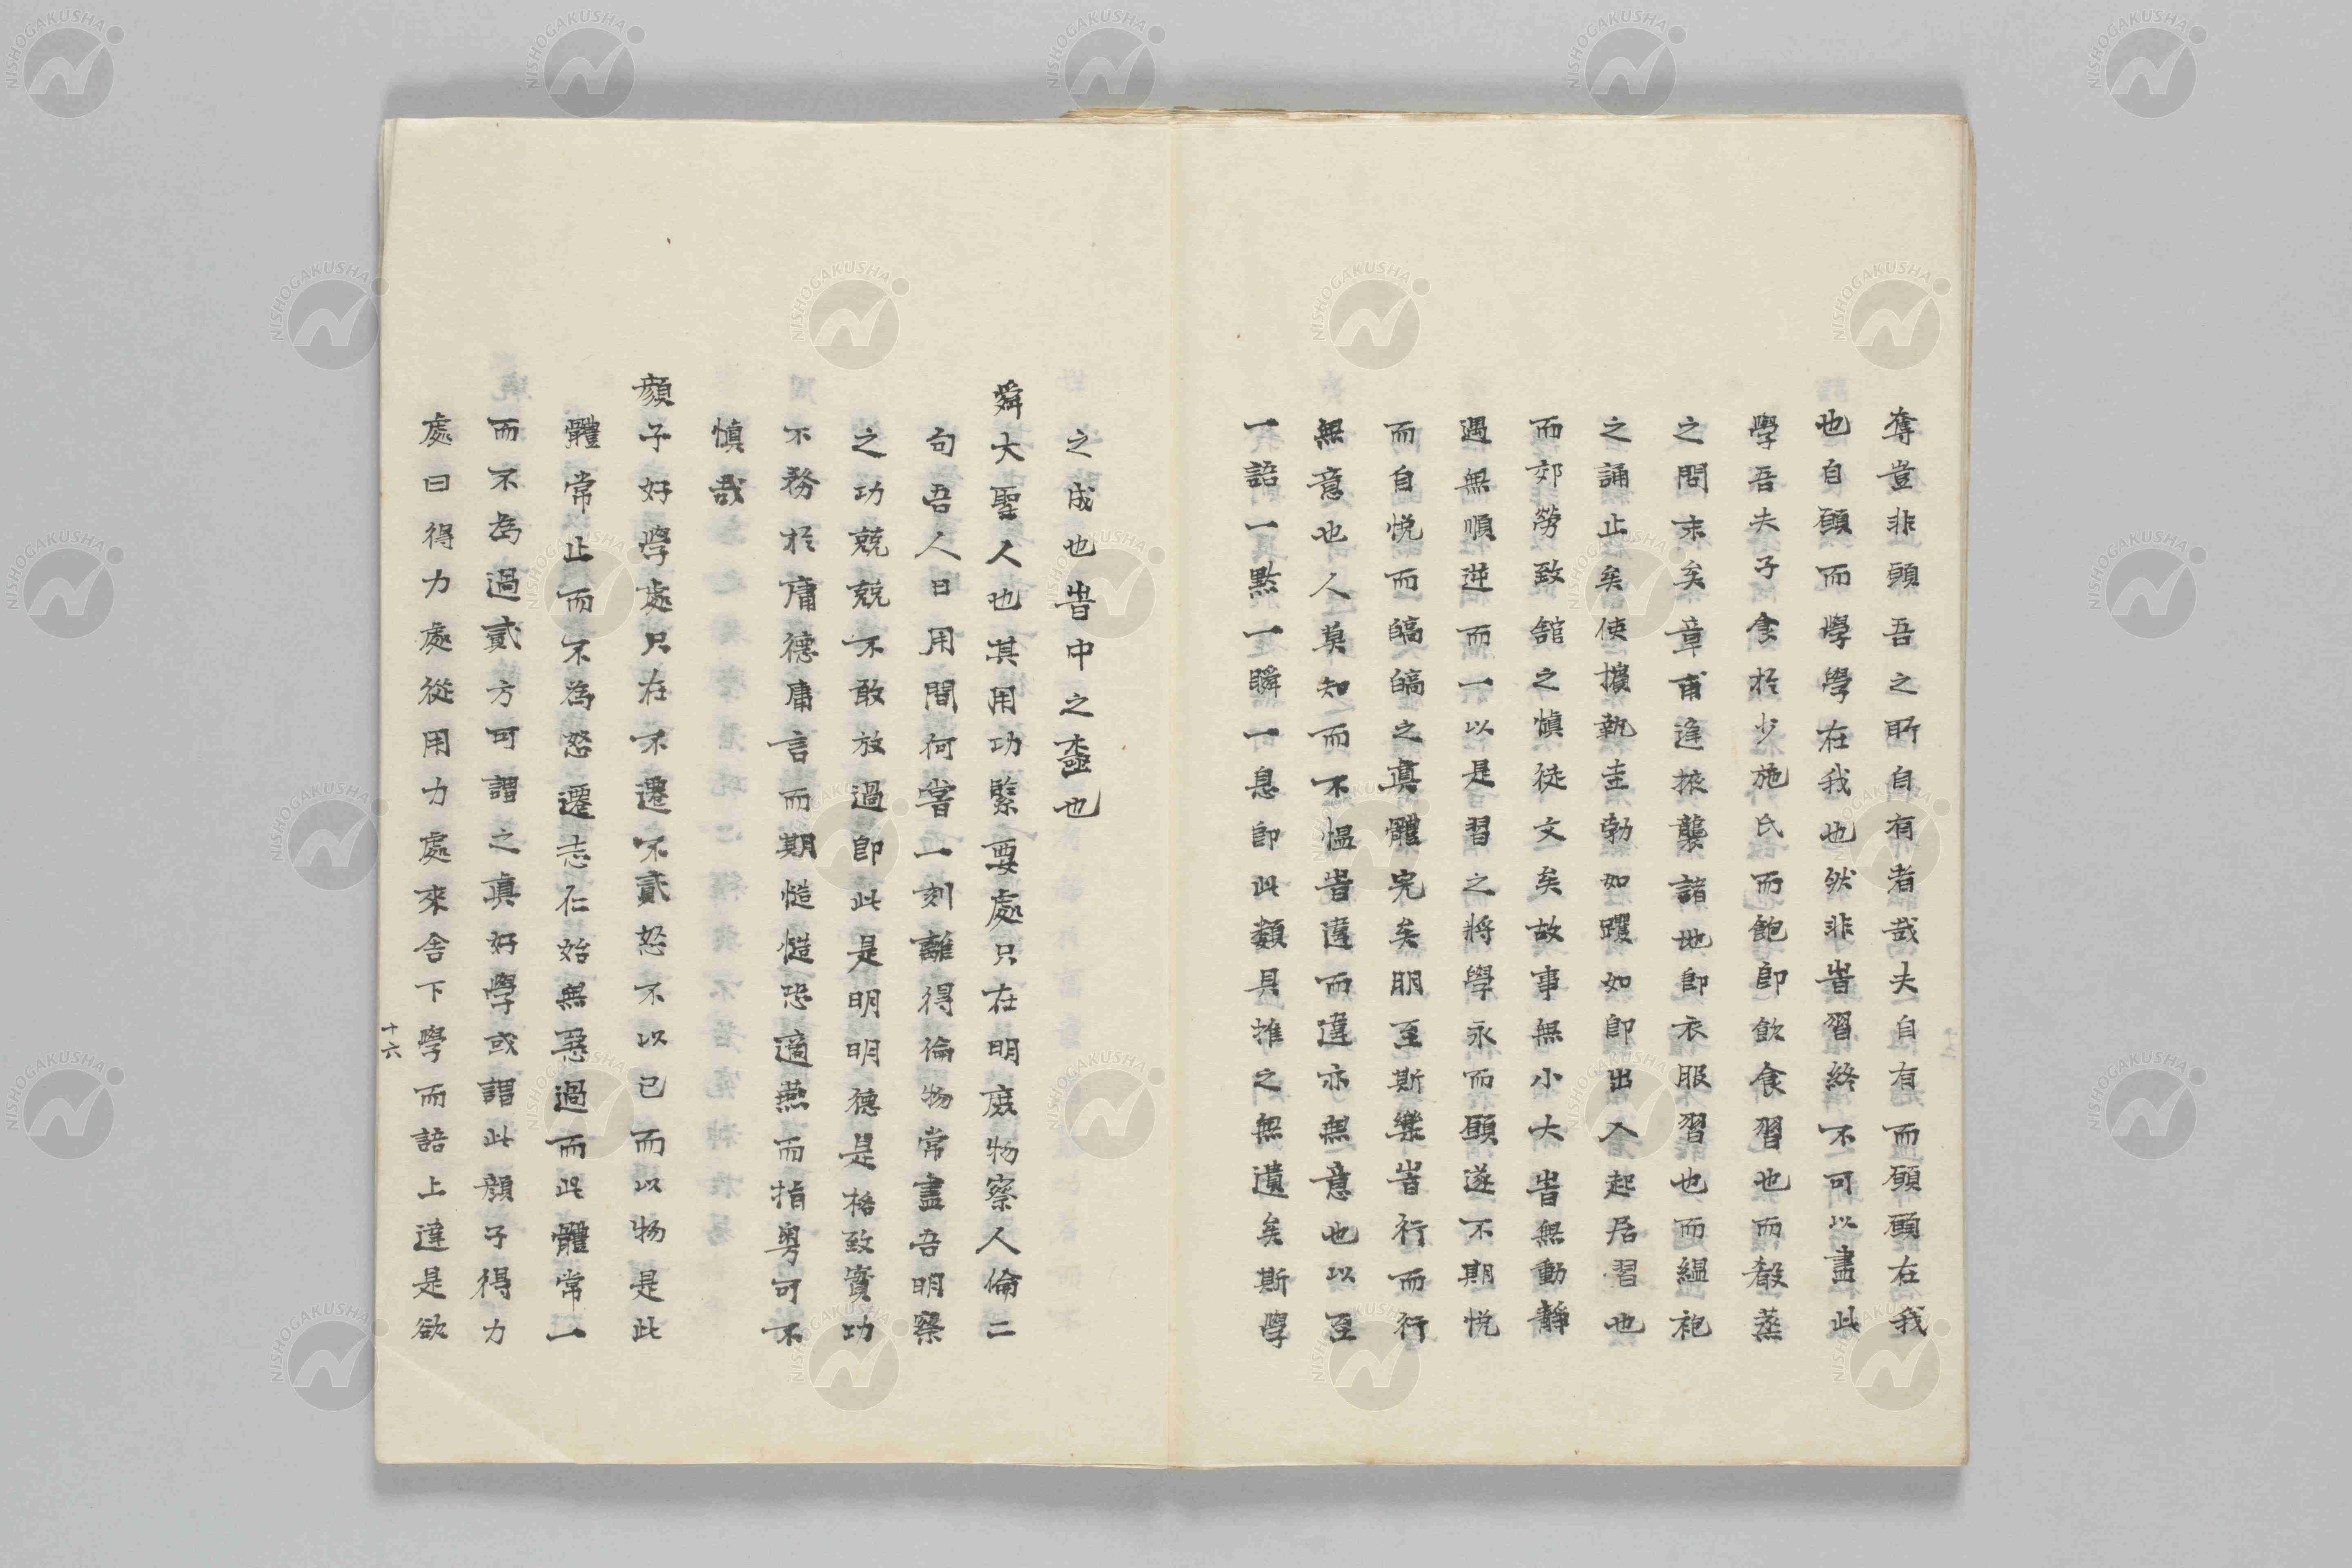 奪豈非頭吾之所自有者哉夫自有而願顧在我
也自顧而學學在我也然非皆習終不可以盡此
學吾夫子食於少施氏而飽即飲食習也而殽蒸
之問末矣章甫逢掖襲諸地即衣服習也而縕袍
之誦止矣使擯執圭勃如躩如即出入起居習也
而郊勞致館之慎徒文矣故事無小大皆無動靜
遇無順逆而一以是習之將學永而願遂不期悅
而自悅而皜皜之真體完矣朋至斯樂皆行而行
無意也人莫知而不慍皆違而違亦無意也以至
一語一點一瞬一息即此類具推之無遺矣斯學
之成也皆中之盡也
舜大聖人也其用功緊要處只在明庶物察人倫二
句吾人日用間何嘗一刻離得倫物常盡吾明察
之功兢兢不敢放過即此是明明德是格致實功
不務於庸德庸言而期慥慥恐適燕而指粵可不
慎哉
顏子好學處只在不遷不貳怒不以己而以物是此
體常止而不為怒遷志仁始無惡過而此體常一
而不為過貳方可謂之真好學或謂此顏子得力
處曰得力處從用力處來舍下學而語上達是欲
十六
NISHOGAKUSHA